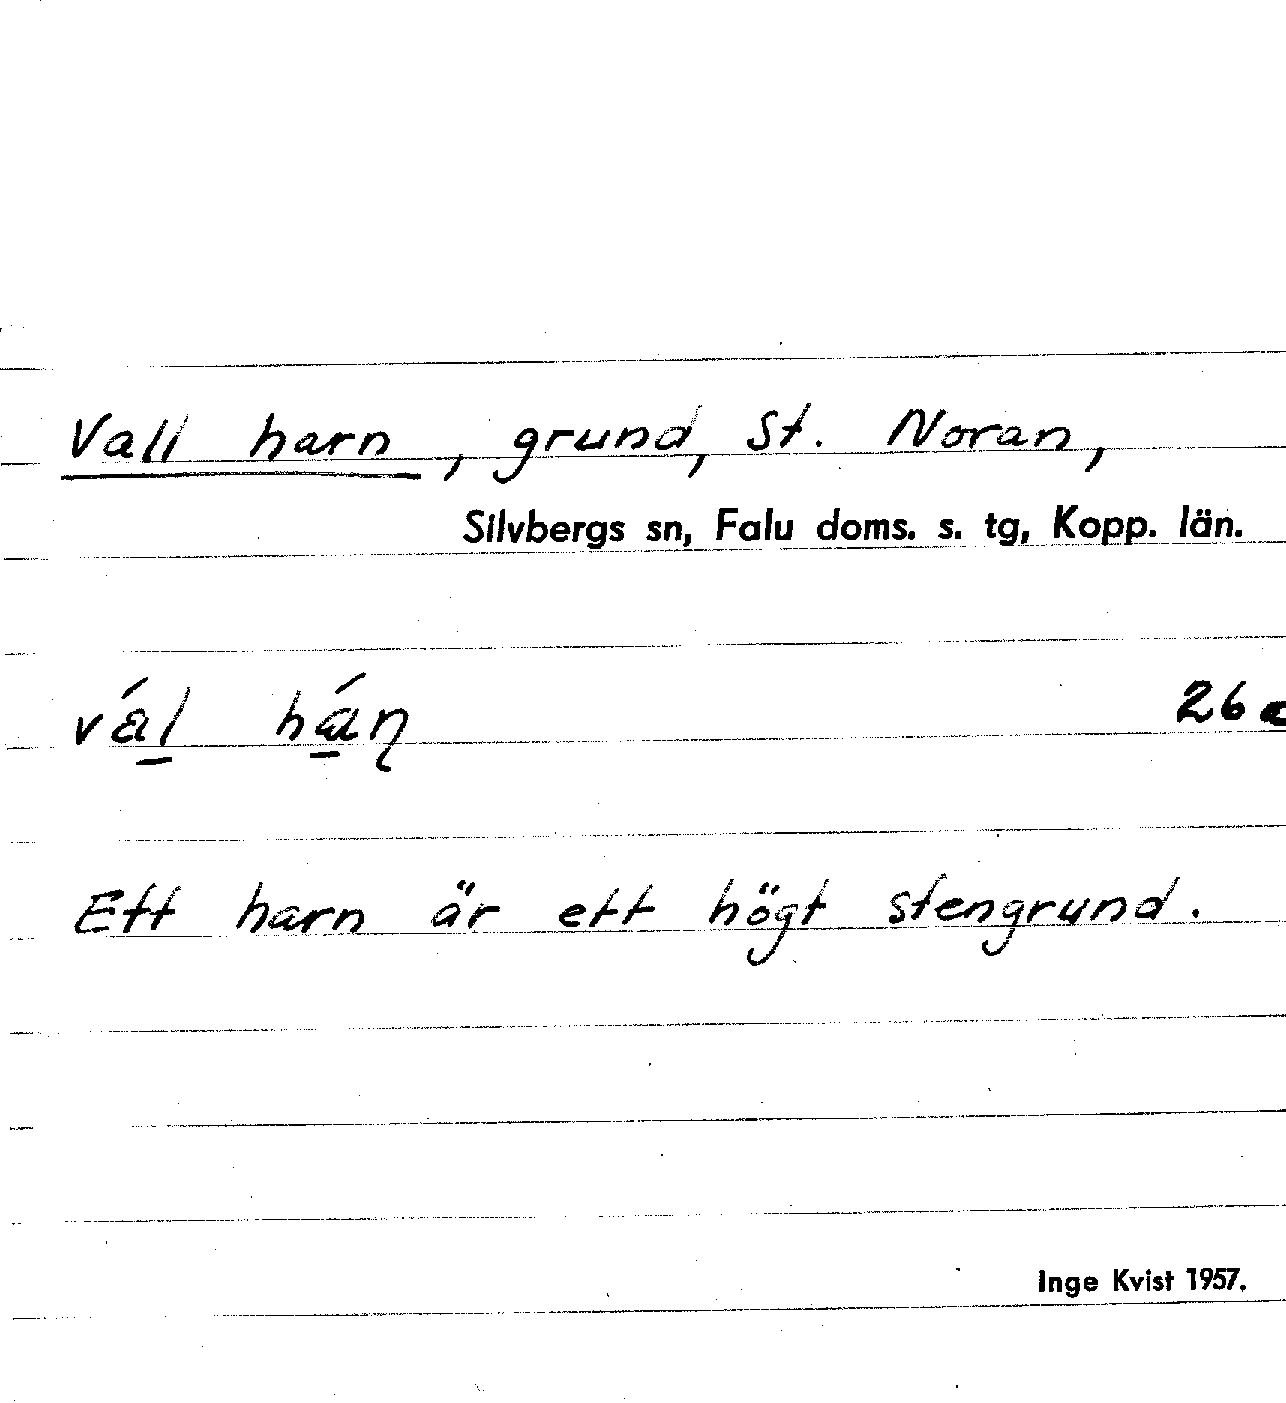 Vall harn, grund, St. Noran,
Silvbergs sn, Falu doms. s. tg, Kopp. län.
vá̱l há̱ɳ 26
Ett harn är ett högt stengrund.
Inge Kvist 1957.